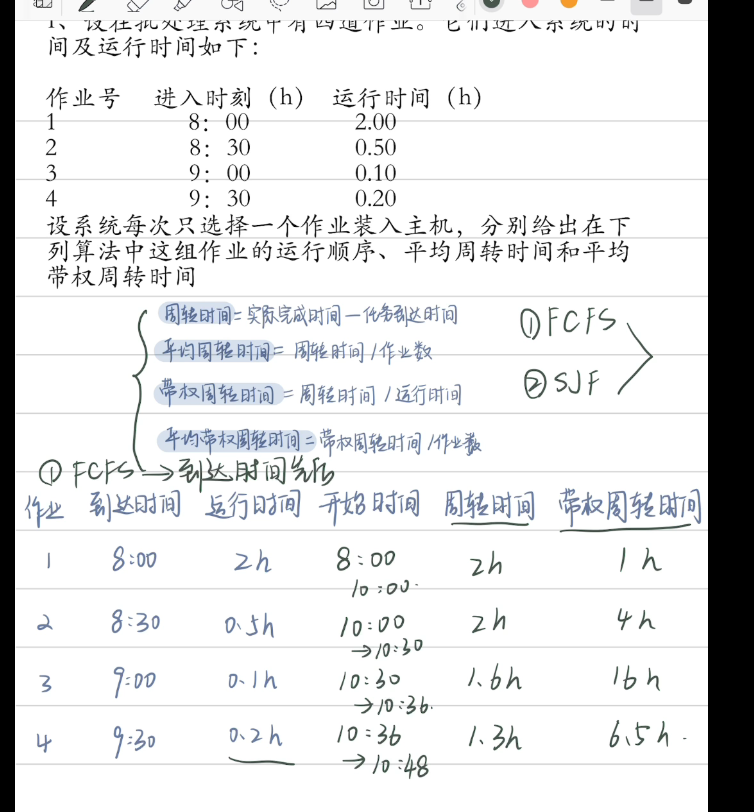 1、设在批处理系统中有四道作业。它们进入系统的时
间及运行时间如下：
作业号 进入时刻（h） 运行时间（h）
1 8：00 2.00
2 8：30 0.50
3 9：00 0.10
4 9：30 0.20
设系统每次只选择一个作业装入主机，分别给出在下
列算法中这组作业的运行顺序、平均周转时间和平均
带权周转时间
周转时间=实际完成时间—任务到达时间
平均周转时间= 周转时间/作业数
带权周转时间=周转时间/运行时间
平均带权周转时间=带权周转时间/作业数
①FCFS
②SJF
①FCFS→到达时间先后
作业 到达时间 运行时间 开始时间 周转时间 带权周转时间
1 8:00 2h 8:00 2h 1h
10:00.
2 8:30 0.5h 10:00 2h 4h
→10:30
3 9:00 0.1h 10:30 1.6h 16h
→10:36.
4 9:30 0.2h 10:36 1.3h 6.5h.
→10:48